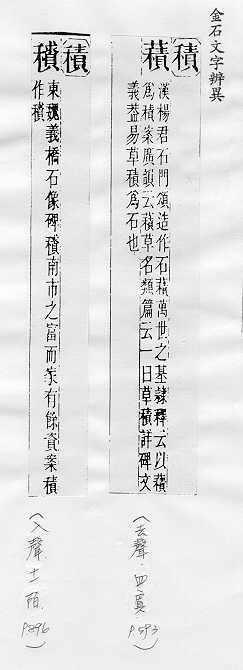 金石文字辨異
積
𧂐
漢楊君石門頌造作石𧂐萬世之基隸釋云以𧂐
為積案廣韻云𧂐草名類篇云一曰草積詳碑文
義葢易草積為石也
(去聲.四寘
P.593)
積
穳
東魏義橋石像碑穳南市之富而家有餘資案積
作穳
(入聲.十一陌
P.896)